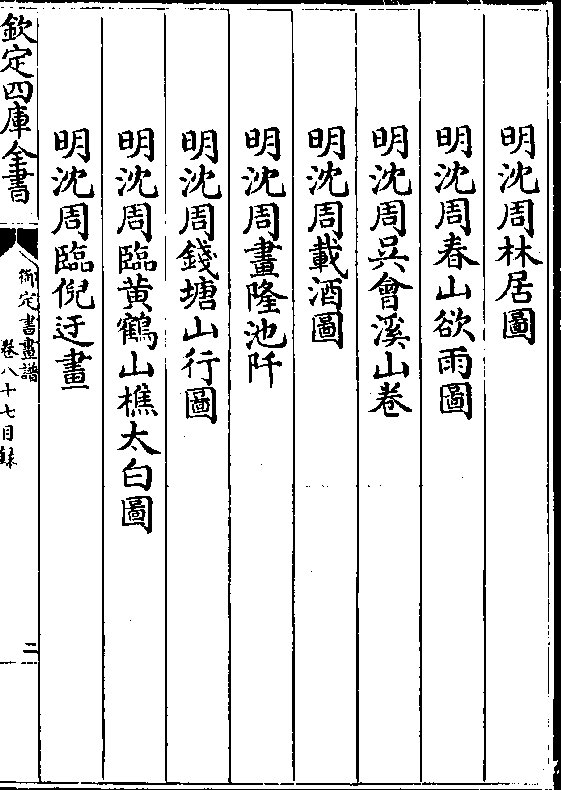 明沈周林居圖
明沈周春山欲雨圖
明沈周吳會溪山卷
明沈周載酒圖
明沈周畫隆池阡
明沈周錢塘山行圖
明沈周臨黄鶴山樵太白圖
明沈周臨倪迂畫
欽定四庫全書
御定書畫譜
卷八十七目録
二